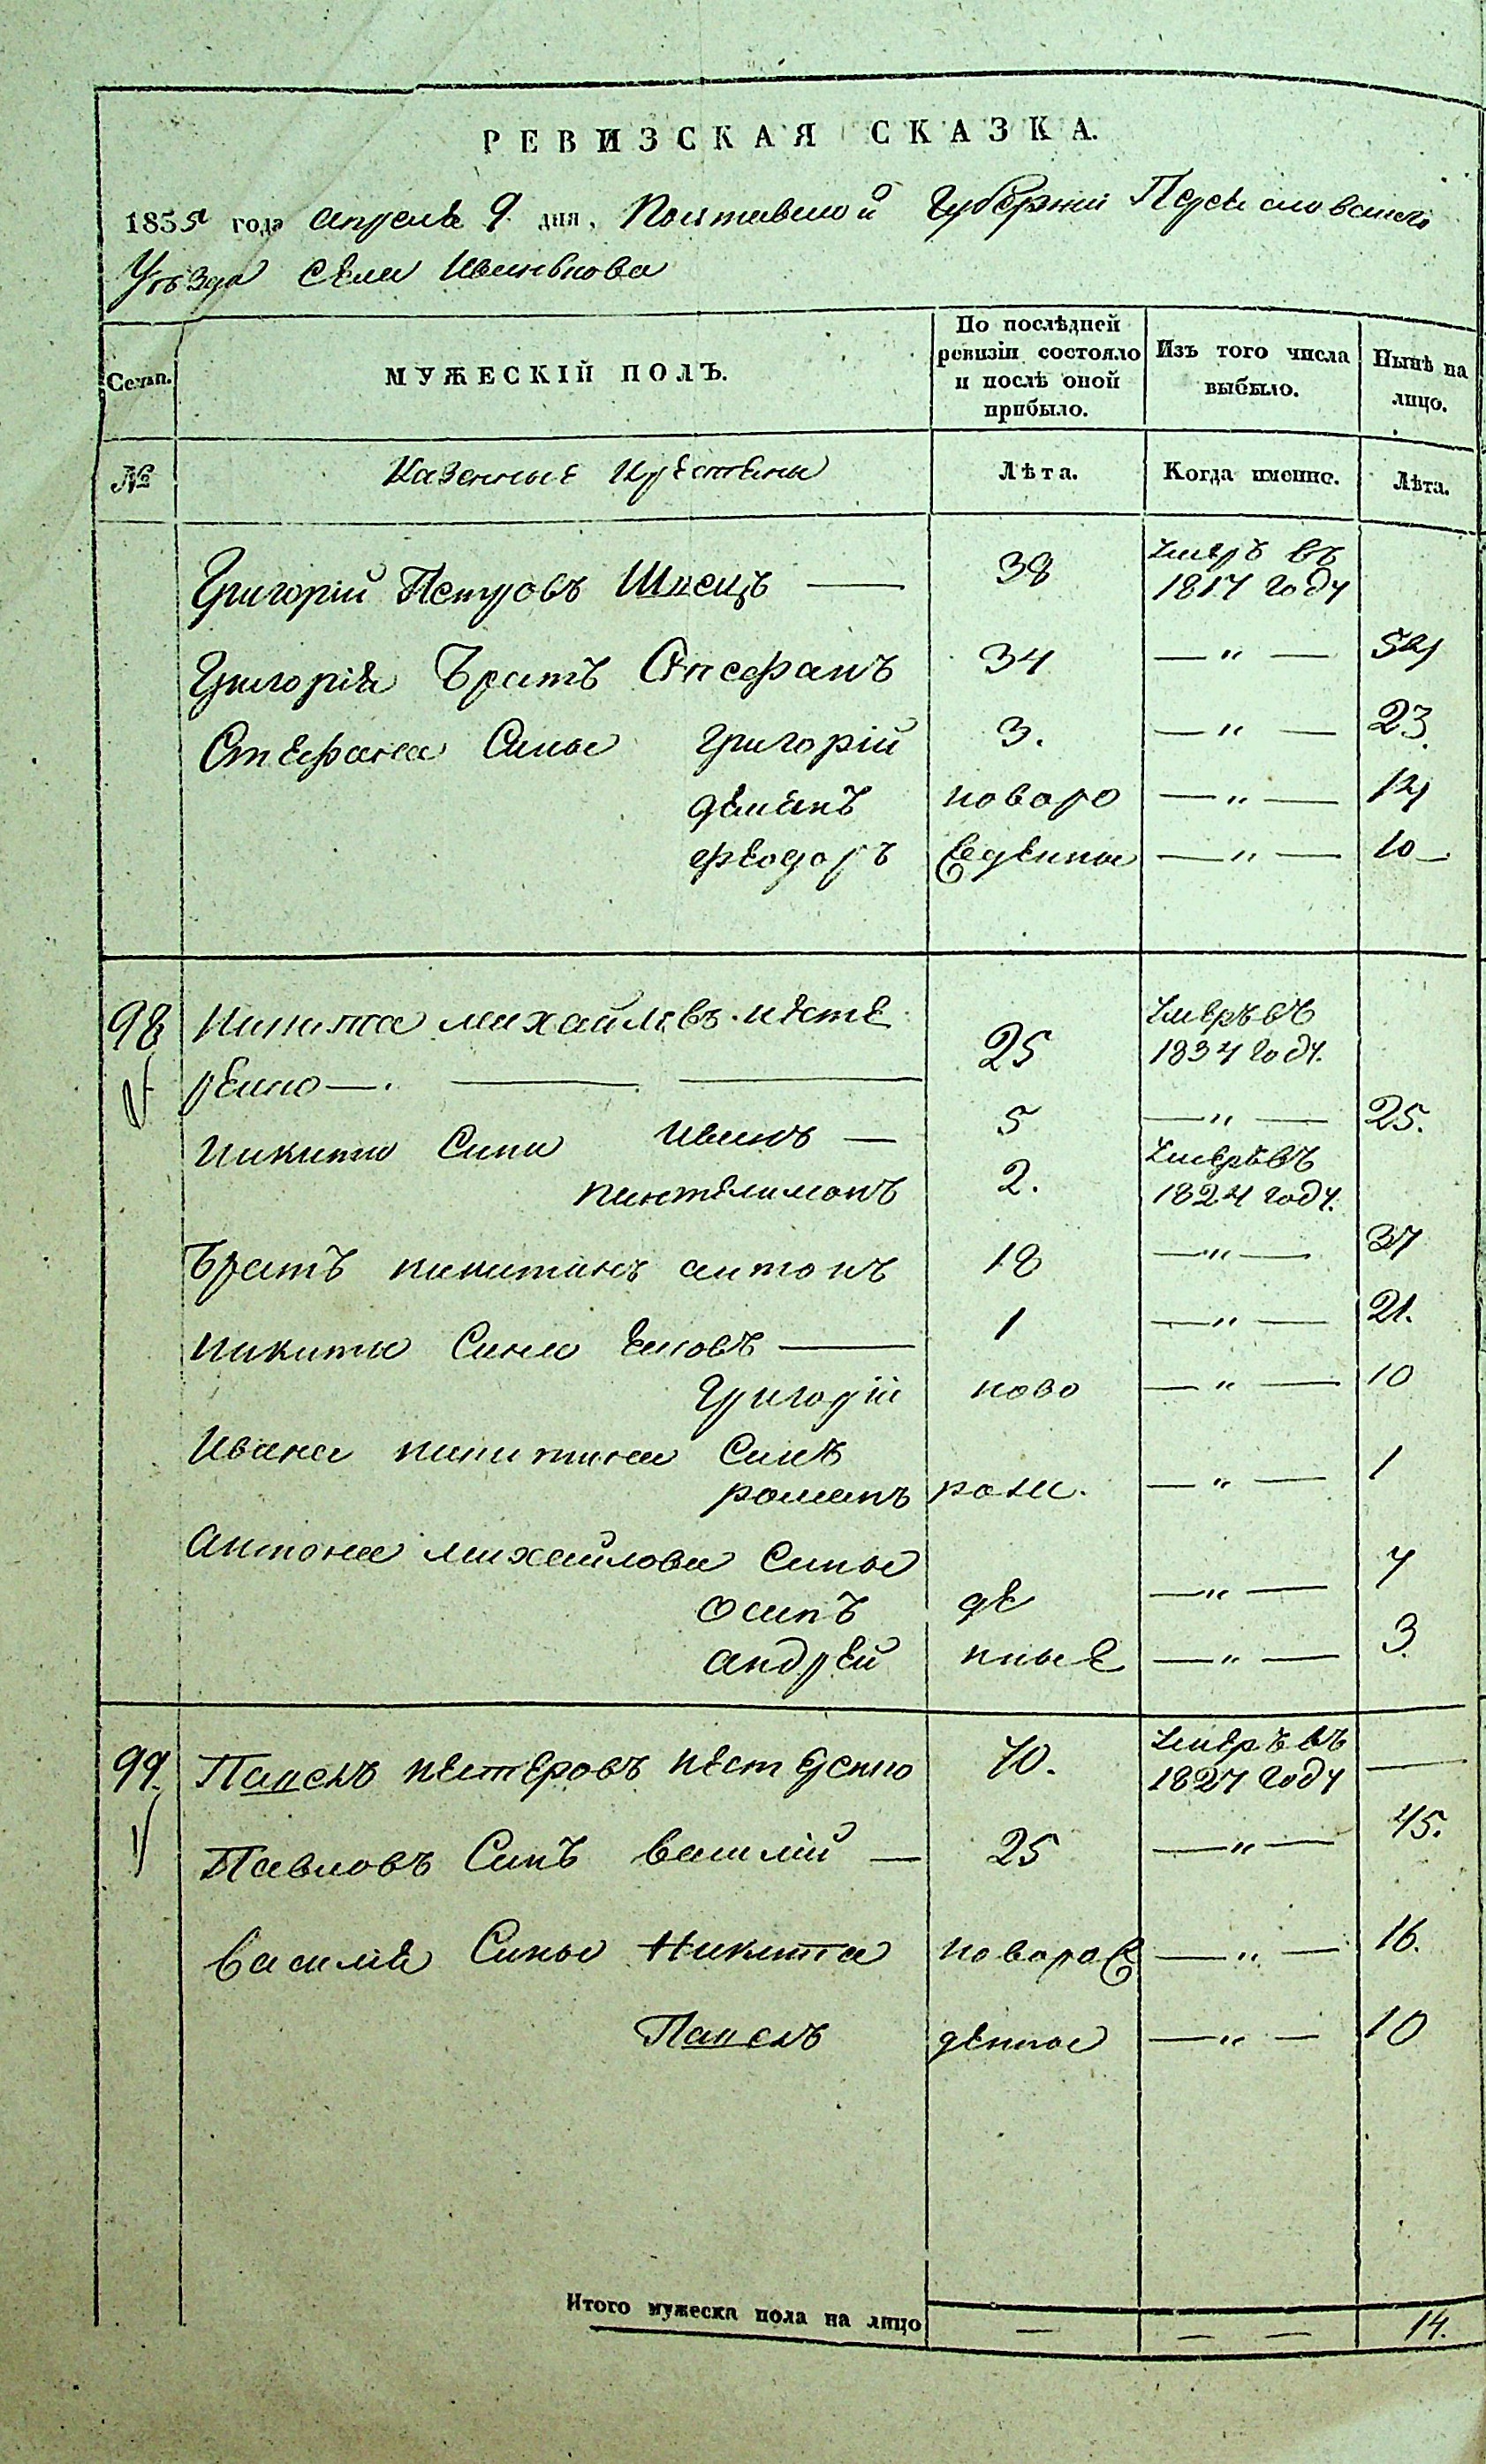 РЕВИЗСКАЯ СКАЗКА.
1835 года апреля 9 дня, Полтавской Губернии Переяславскаго
Уѣзда Села Иванькова
Семьи. МУЖЕСКІЙ ПОЛЪ. По послѣдней ревизіи состояло и послѣ оной прибыло. Изъ того числа выбыло. Нынѣ на лицо.
№ Казенные крестяны Лѣта. Когда именно. Лѣта.
Григорій Петровъ Швецъ — 38 умеръ въ 1817 году
Григорія Братъ Стефанъ 34 — „ — 54
Стефана Сины Григорій 3. — „ — 23.
демянъ новоро — „ — 14
феодоръ жденны — „ — 10
98 Никита михайловъ несте 25 умеръ въ 1834 году.
ренко
Никиты Сини Иванъ — 5 — „ — 25.
пантелимонъ 2. умеръ въ 1824 году.
Братъ никитинъ антонъ 18 — „ — 37
Никиты Сини Яковъ — 1 — „ — 21.
Григорій ново — „ — 10
Ивана никитина Синъ
романъ рож. — „ — 1
Антона михайлова Сины
осипъ де — „ — 7
андрей нные — „ — 3.
99. Павелъ нестеровъ нестеренко 70. умеръ въ 1827 году —
Павловъ Синъ василій — 25 — „ — 45.
василія Сины Никита новорож — „ — 16.
Павелъ денные — „ — 10
Итого мужеска пола на лицо — — — 14.